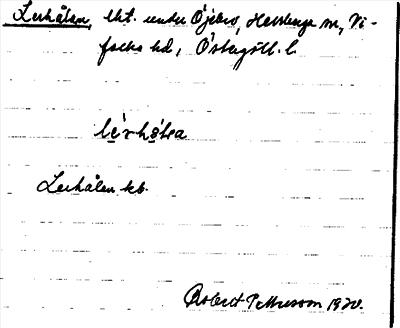 Lerhålan, lht. under Öjebro, Herrberga sn, Vi-
folka hd, Östergötl. l.
lèrhòla
Lerhålan kb.
Robert Pettersson 1920.